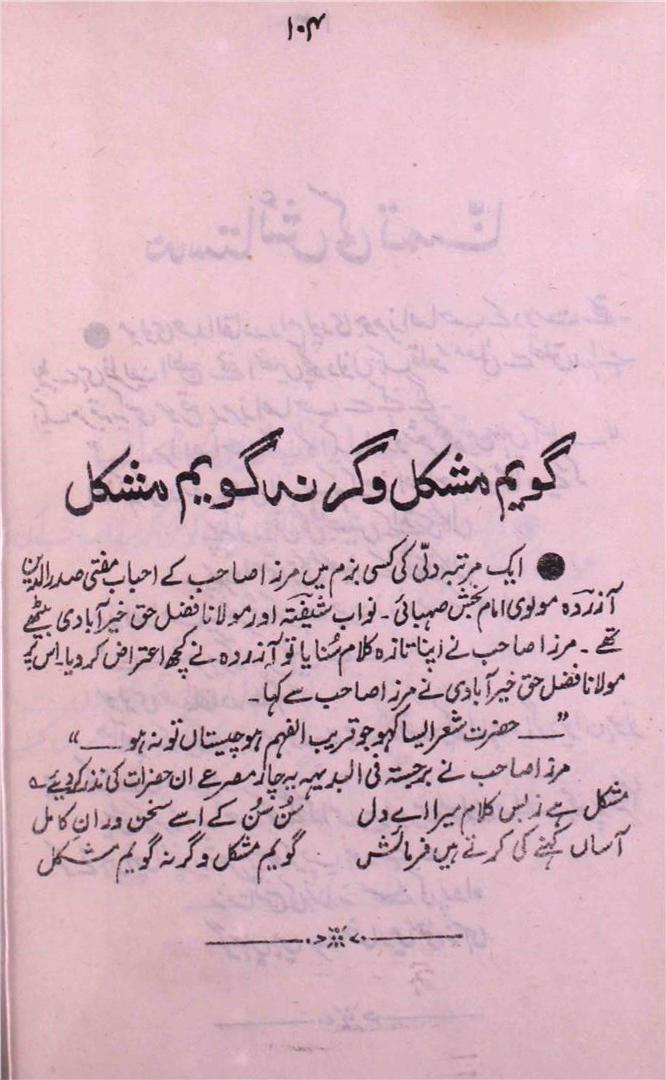 ۱۰۴
گویم مشکل وگرنہ گویم مشکل
● ایک مرتبہ دلّی کی کسی بزم میں مرزا صاحب کے احباب مفتی صدرالدین
آزردہ مولوی امام بخش صہبائی۔ نواب شیفتہ اور مولانا فضل حق خیرآبادی بیٹھے
تھے۔ مرزا صاحب نے اپنا تازہ کلام سُنایا تو آزردہ نے کچھ اعتراض کر دیا۔ اس پر
مولانا فضل حق خیرآبادی نے مرزا صاحب سے کہا۔
”— حضرت شعر ایسا کہو جو قریب الفہم ہو چیستاں تو نہ ہو —“
مرزا صاحب نے برجستہ فی البدیہہ یہ چار مصرعے ان حضرات کی نذر کر دیئے ؎
مشکل ہے زبس کلام میرا اے دل سُن سُن کے اسے سخن ورانِ کامل
آساں کہنے کی کرتے ہیں فرمائش گویم مشکل وگرنہ گویم مشکل